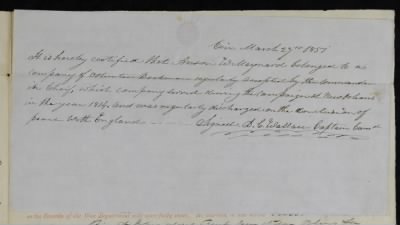 Cin March 27th 1851
It is hereby certified that Anson W. Maynard belonged to a
company of Volunteer regularly accepted by the Commander
in Chief, which company served during the Campaign at New Orleans
in the year 1814. and was regularly discharged on the conclusion of
peace with England - - - - Signed D. C. Wallace Captain Com
in the Records of the War Department